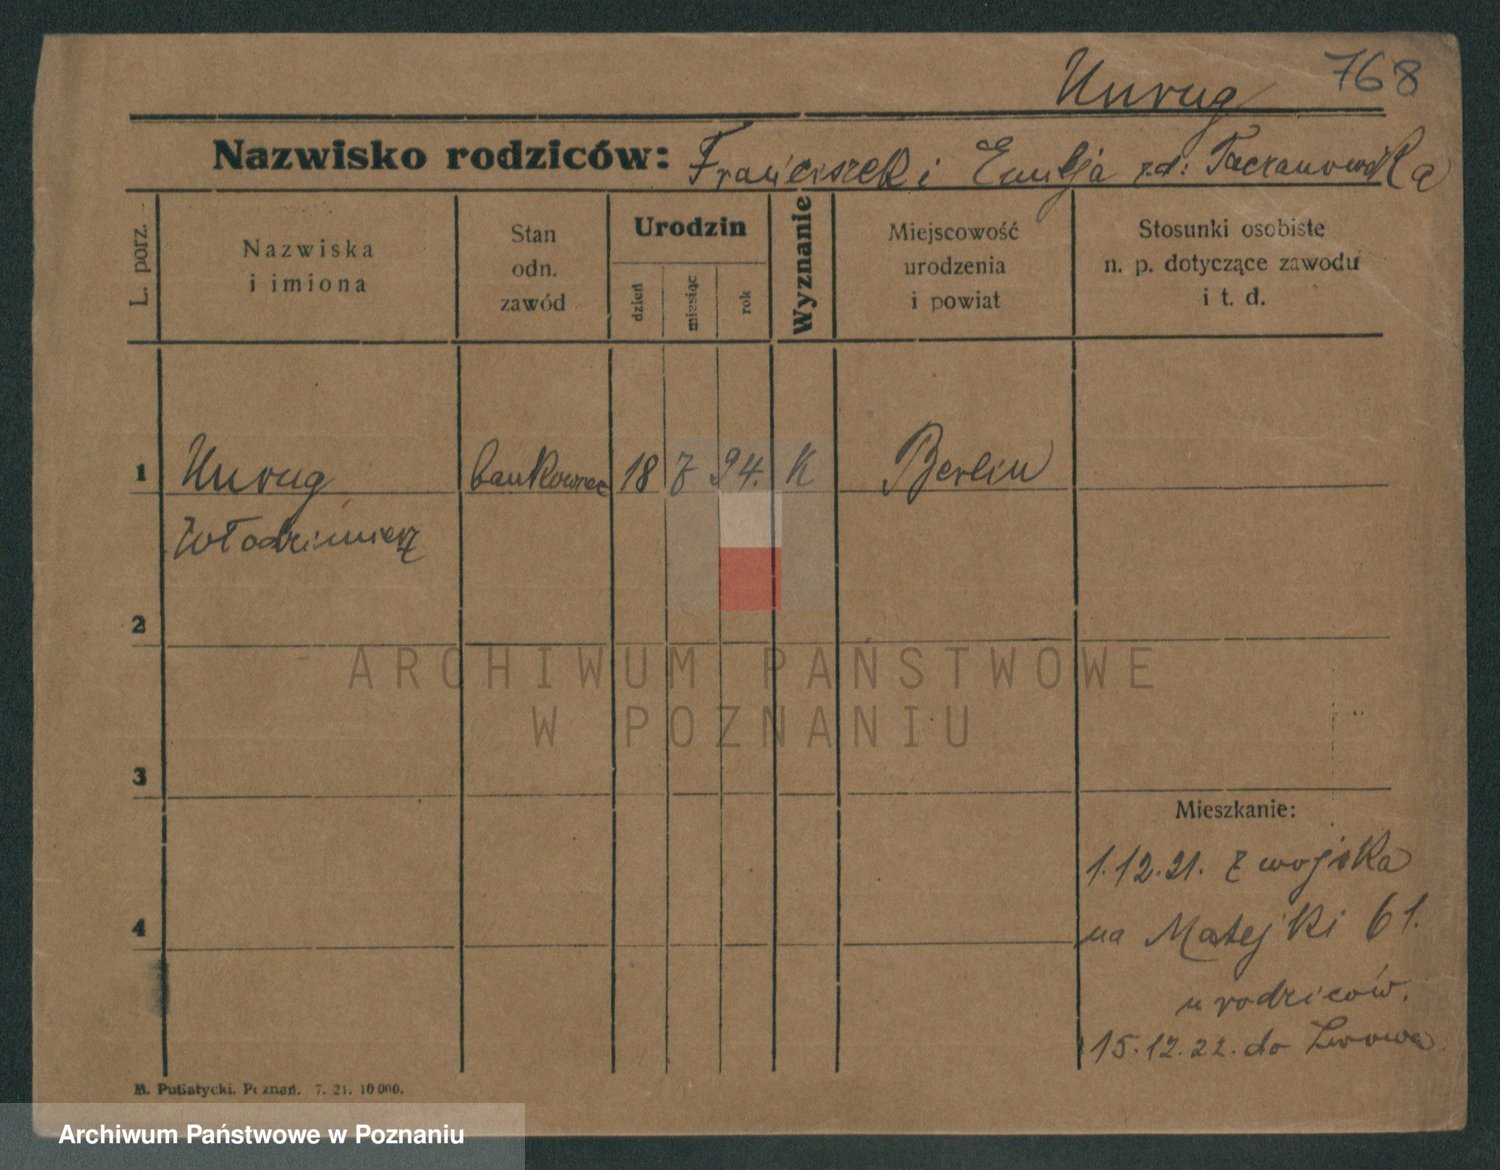 Unrug 768
Nazwisko rodziców: Franciszek i Emilja zd: Taczanowska
L. porz.
Nazwiska
i imiona
Stan
odn.
zawód
Urodzin
dzień
miesiąc
rok
Wyznanie
Miejscowość
urodzenia
i powiat
Stosunki osobiste
n. p. dotyczące zawodu
i t. d.
1 Unrug bankowiec 18 7 94. K Berlin
Włodzimierz
2
3
Mieszkanie:
1.12.21. z wojska
4
na Matejki 61.
u rodziców.
15.12.22. do Lwowa
M. Putiatycki. Poznań. 7. 21. 10 000.
ARCHIWUM PAŃSTWOWE
W POZNANIU
Archiwum Państwowe w Poznaniu